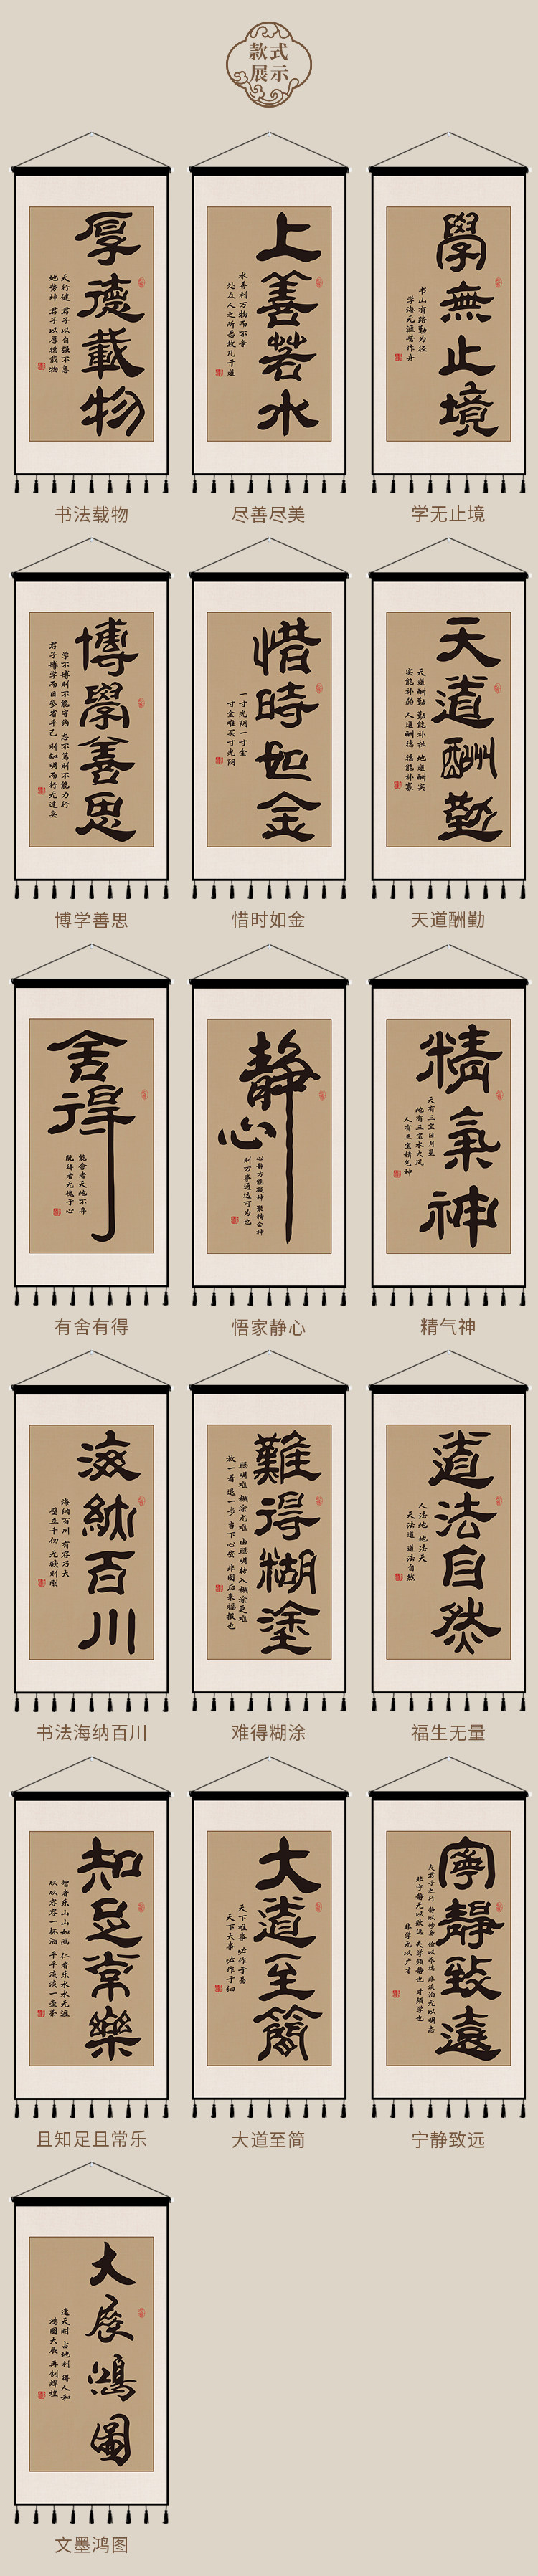 款式
展示
厚德載物
天行健 君子以自强不息
地势坤 君子以厚德载物
书法载物
上善若水
水善利万物而不争
处众人之所恶故几于道
尽善尽美
學無止境
书山有路勤为径
学海无涯苦作舟
学无止境
博學善思
学不博则不能守约 志不笃则不能力行
君子博学而日参省乎己 则知明而行无过矣
博学善思
惜時如金
一寸光阴一寸金
寸金难买寸光阴
惜时如金
天道酬勤
天道酬勤 勤能补拙 地道酬实
实能补弱 人道酬德 德能补寡
天道酬勤
舍得
能舍者天地不弃
既得者无愧于心
有舍有得
静心
心静方能凝神 聚精会神
则万事通达可为也
悟家静心
精氣神
天有三宝日月星
地有三宝水火风
人有三宝精气神
精气神
海納百川
海纳百川 有容乃大
壁立千仞 无欲则刚
书法海纳百川
難得糊塗
聪明难 糊涂尤难 由聪明转入糊涂更难
放一着 退一步 当下心安 非图后来福报也
难得糊涂
道法自然
人法地 地法天
天法道 道法自然
福生无量
知足常樂
智者乐山山如画 仁者乐水水无涯
从从容容一杯酒 平平淡淡一壶茶
且知足且常乐
大道至簡
天下难事 必作于易
天下大事 必作于细
大道至简
寧靜致遠
夫君子之行 静以修身 俭以养德 非淡泊无以明志
非宁静无以致远 夫学须静也 才须学也
非学无以广才
宁静致远
大展鴻圖
逢天时 占地利 得人和
鸿图大展 再创辉煌
文墨鸿图